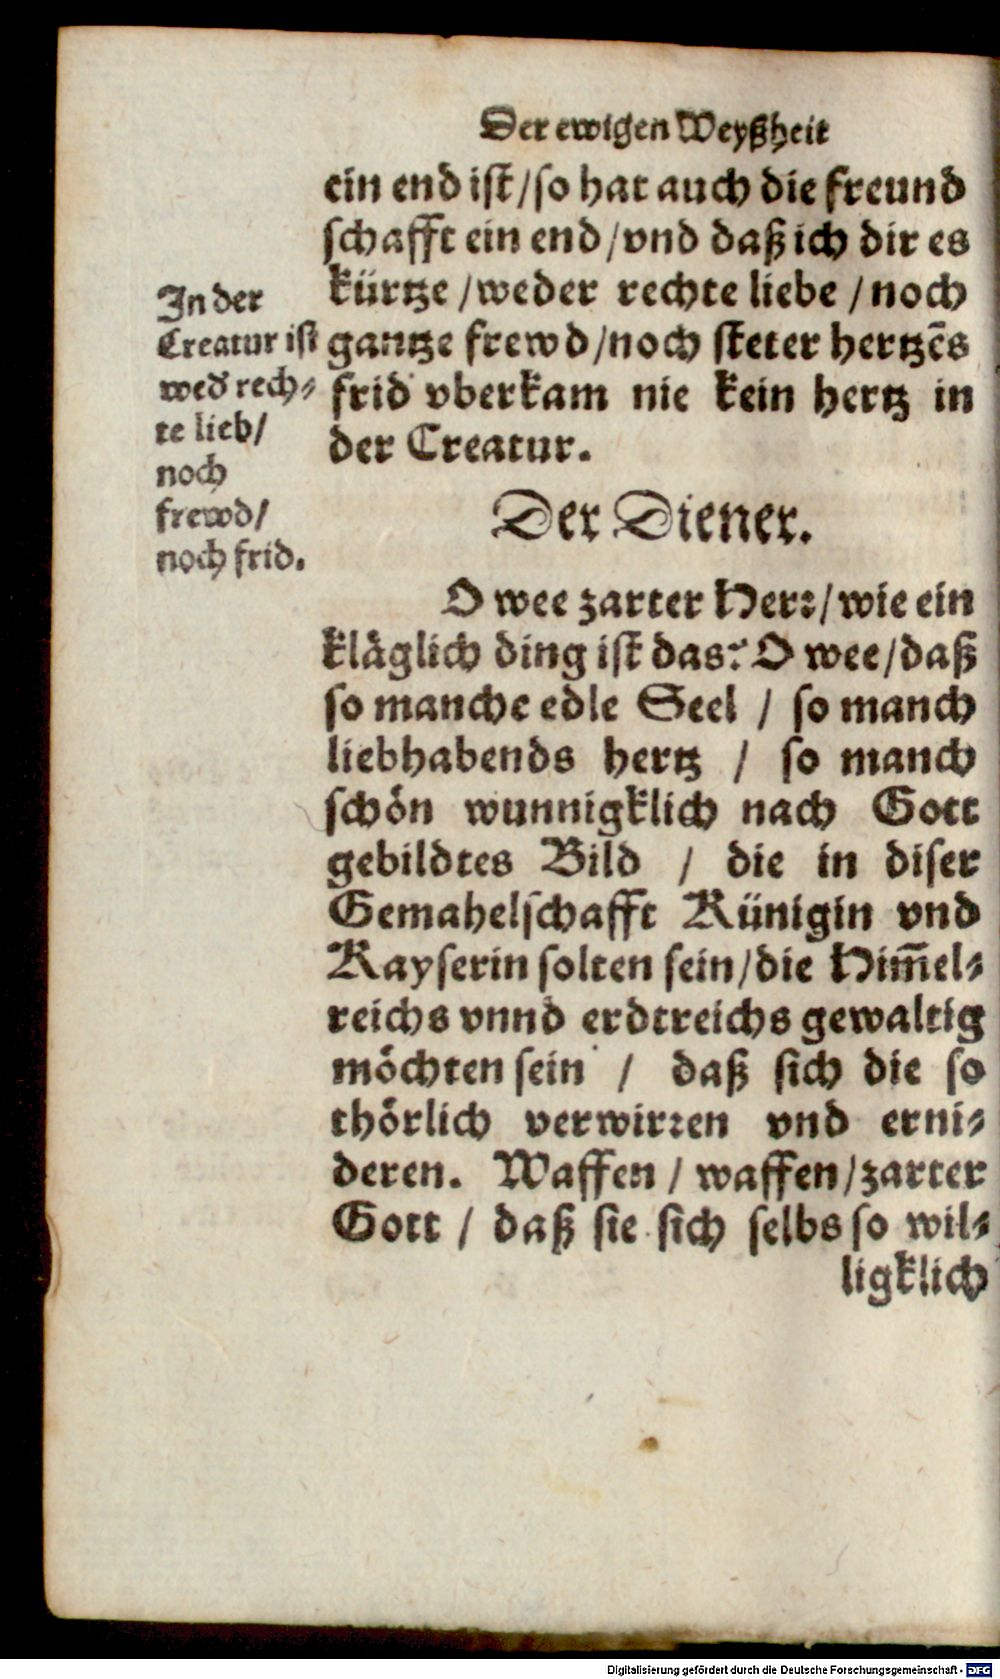 Der ewigen Weyßheit
ein end ist/so hat auch die freund
schafft ein end/vnd daß ich dir es
kürtze/weder rechte liebe/noch
gantze frewd/noch steter hertzēs
frid vberkam nie kein hertz in
der Creatur.
In der
Creatur ist
wed̕ rech⸗
te lieb/
noch
frewd/
noch frid.
Der Diener.
O wee zarter Herꝛ/wie ein
kläglich ding ist das? O wee/daß
so manche edle Seel / so manch
liebhabends hertz / so manch
schön wunnigklich nach Gott
gebildtes Bild / die in diser
Gemahelschafft Künigin vnd
Kayserin solten sein/die Him̄el⸗
reichs vnnd erdtreichs gewaltig
möchten sein / daß sich die so
thörlich verwirꝛen vnd erni⸗
deren. Waffen / waffen/zarter
Gott / daß sie sich selbs so wil⸗
ligklich
Digitalisierung gefördert durch die Deutsche Forschungsgemeinschaft - DFG